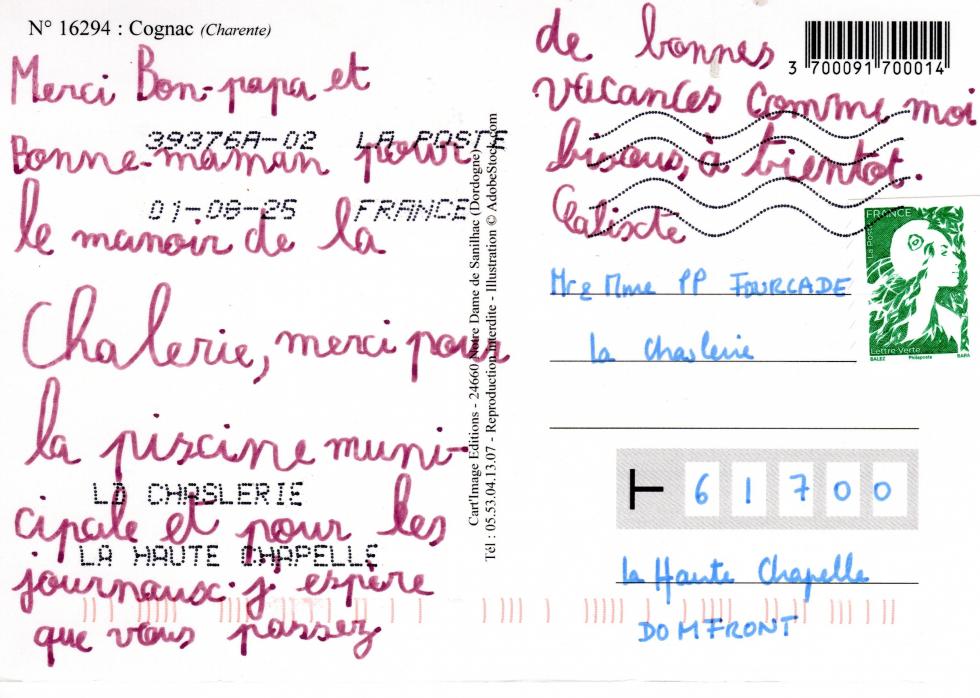 N° 16294 : Cognac (Charente)
Merci Bon-papa et
Bonne-maman pour
le manoir de la
Chalerie, merci pour
la piscine muni-
cipale et pour les
journaux. j'espère
que vous passez
39376A-02 LA POSTE
01-08-25 FRANCE
LA CHASLERIE
LA HAUTE CHAPELLE
Cart'Image Editions - 24660 Notre Dame de Sanilhac (Dordogne)
Tél : 05.53.04.13.07 - Reproduction Interdite - Illustration © AdobeStock.com
de bonnes
vacances comme moi
bisous, à bientot.
Calixte
3 700091 700014
FRANCE
La Poste
Lettre Verte
Philaposte
Mr & Mme PP FOURCADE
la Chaslerie
61700
la Haute Chapelle
DOMFRONT